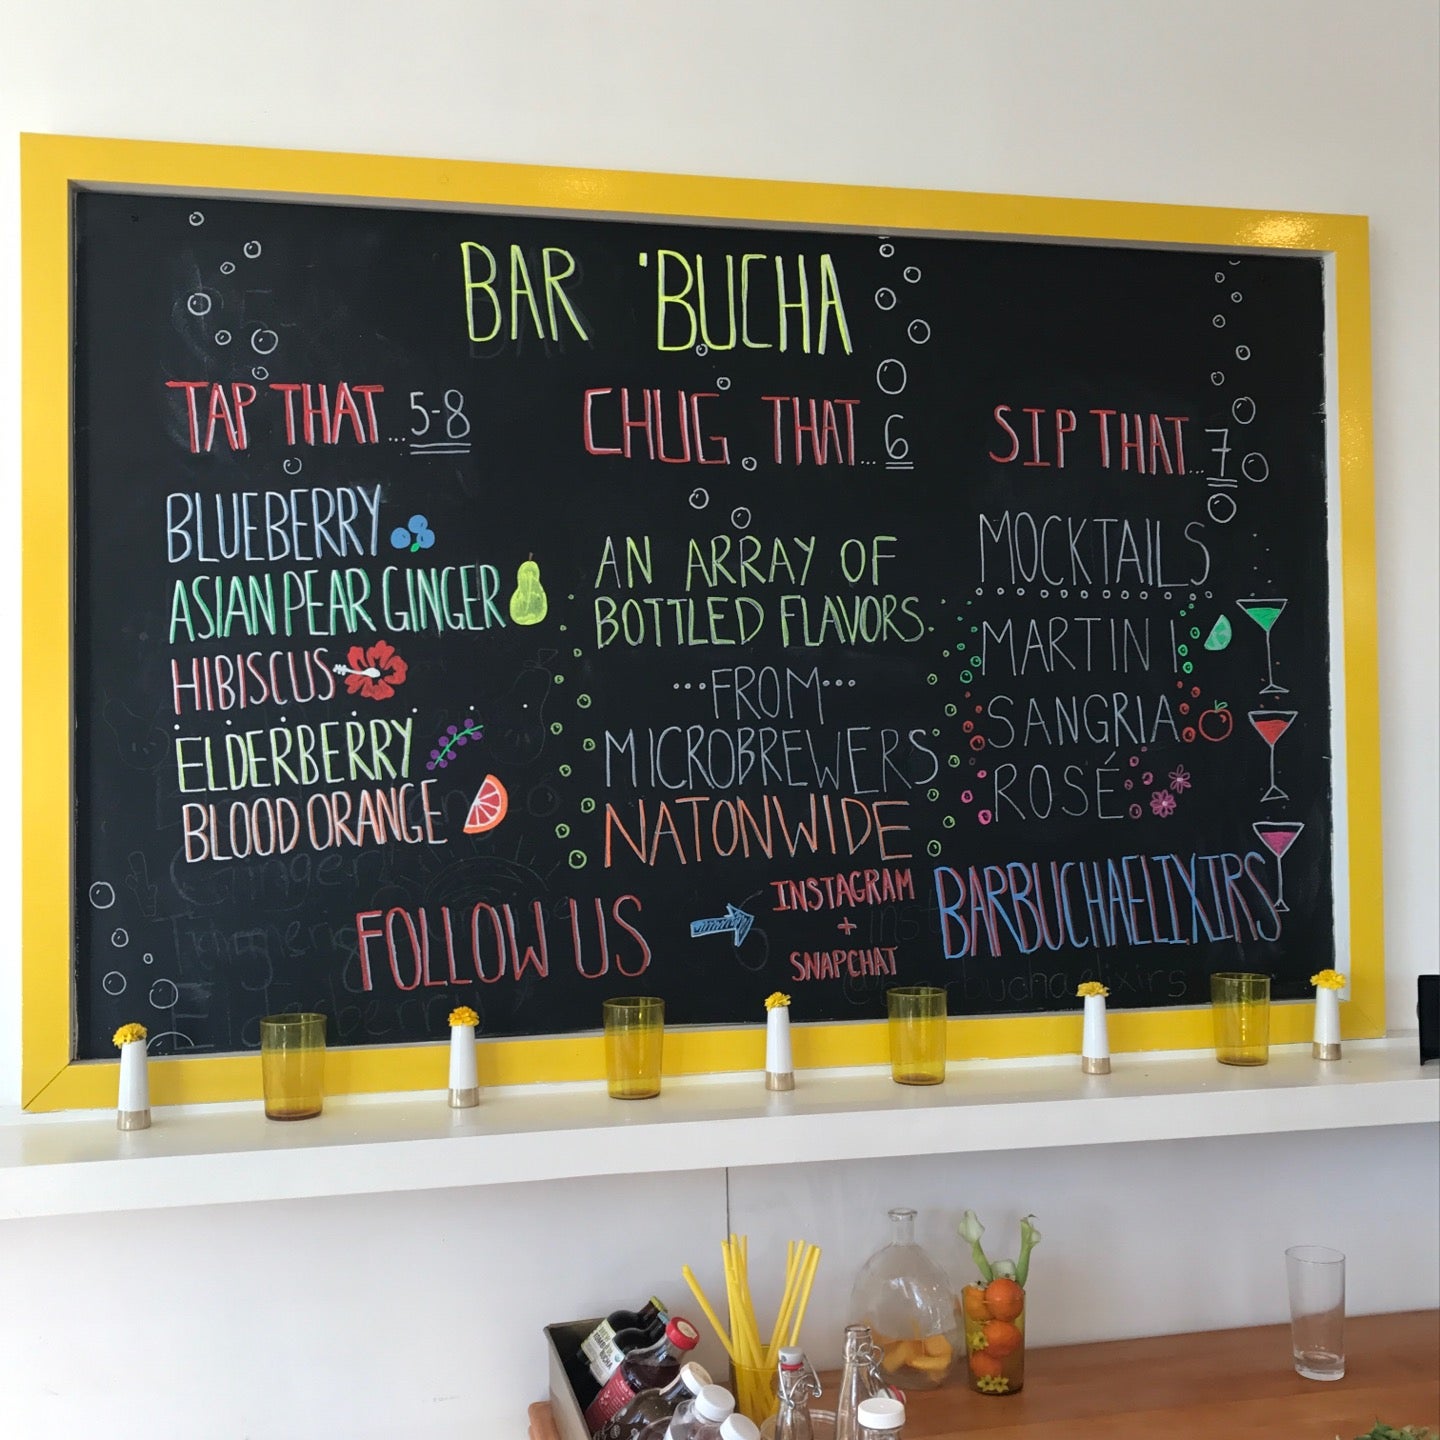 BAR 'BUCHA
TAP THAT...5-8
BLUEBERRY
ASIAN PEAR GINGER
HIBISCUS
ELDERBERRY
BLOOD ORANGE
CHUG THAT...6
AN ARRAY OF
BOTTLED FLAVORS
...FROM...
MICROBREWERS
NATONWIDE
SIP THAT...7
MOCKTAILS
MARTINI
SANGRIA
ROSÉ
FOLLOW US
INSTAGRAM
+
SNAPCHAT
BARBUCHAELIXIRS